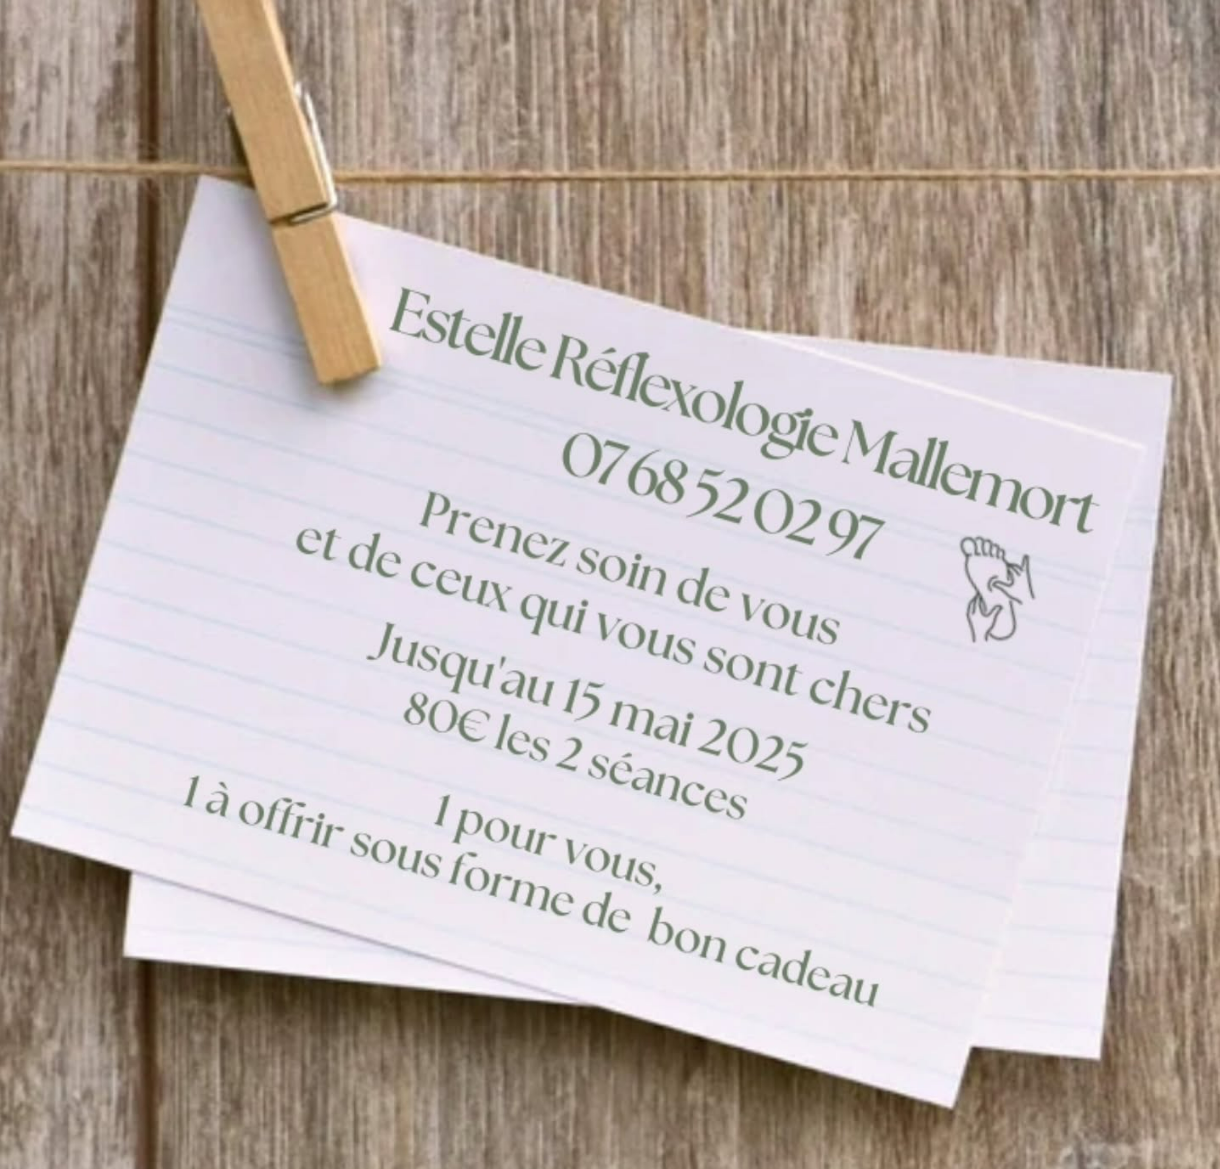 Estelle Réflexologie Mallemort
07 68 52 02 97
Prenez soin de vous
et de ceux qui vous sont chers
Jusqu'au 15 mai 2025
80€ les 2 séances
1 pour vous,
1 à offrir sous forme de bon cadeau